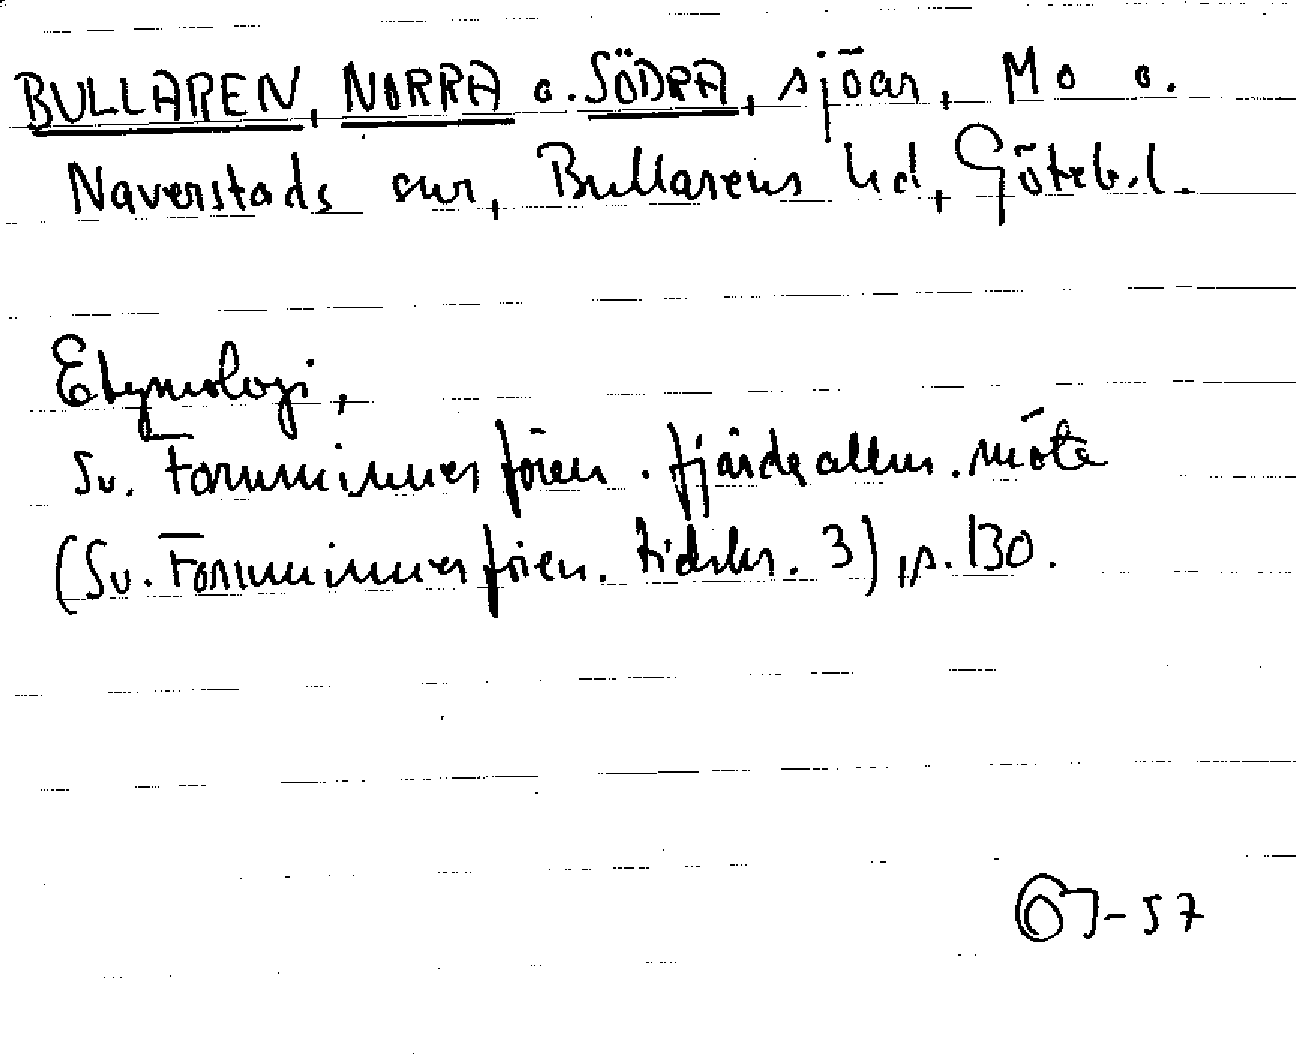 BULLAREN, NORRA o. SÖDRA, sjöar, Mo o.
Naverstads snr, Bullarens hd, Göteb.l.
Etymologi.
Sv. Fornminnesfören. fjärde allm. möte
(Sv. Fornminnesfören. tidskr. 3), s. 130.